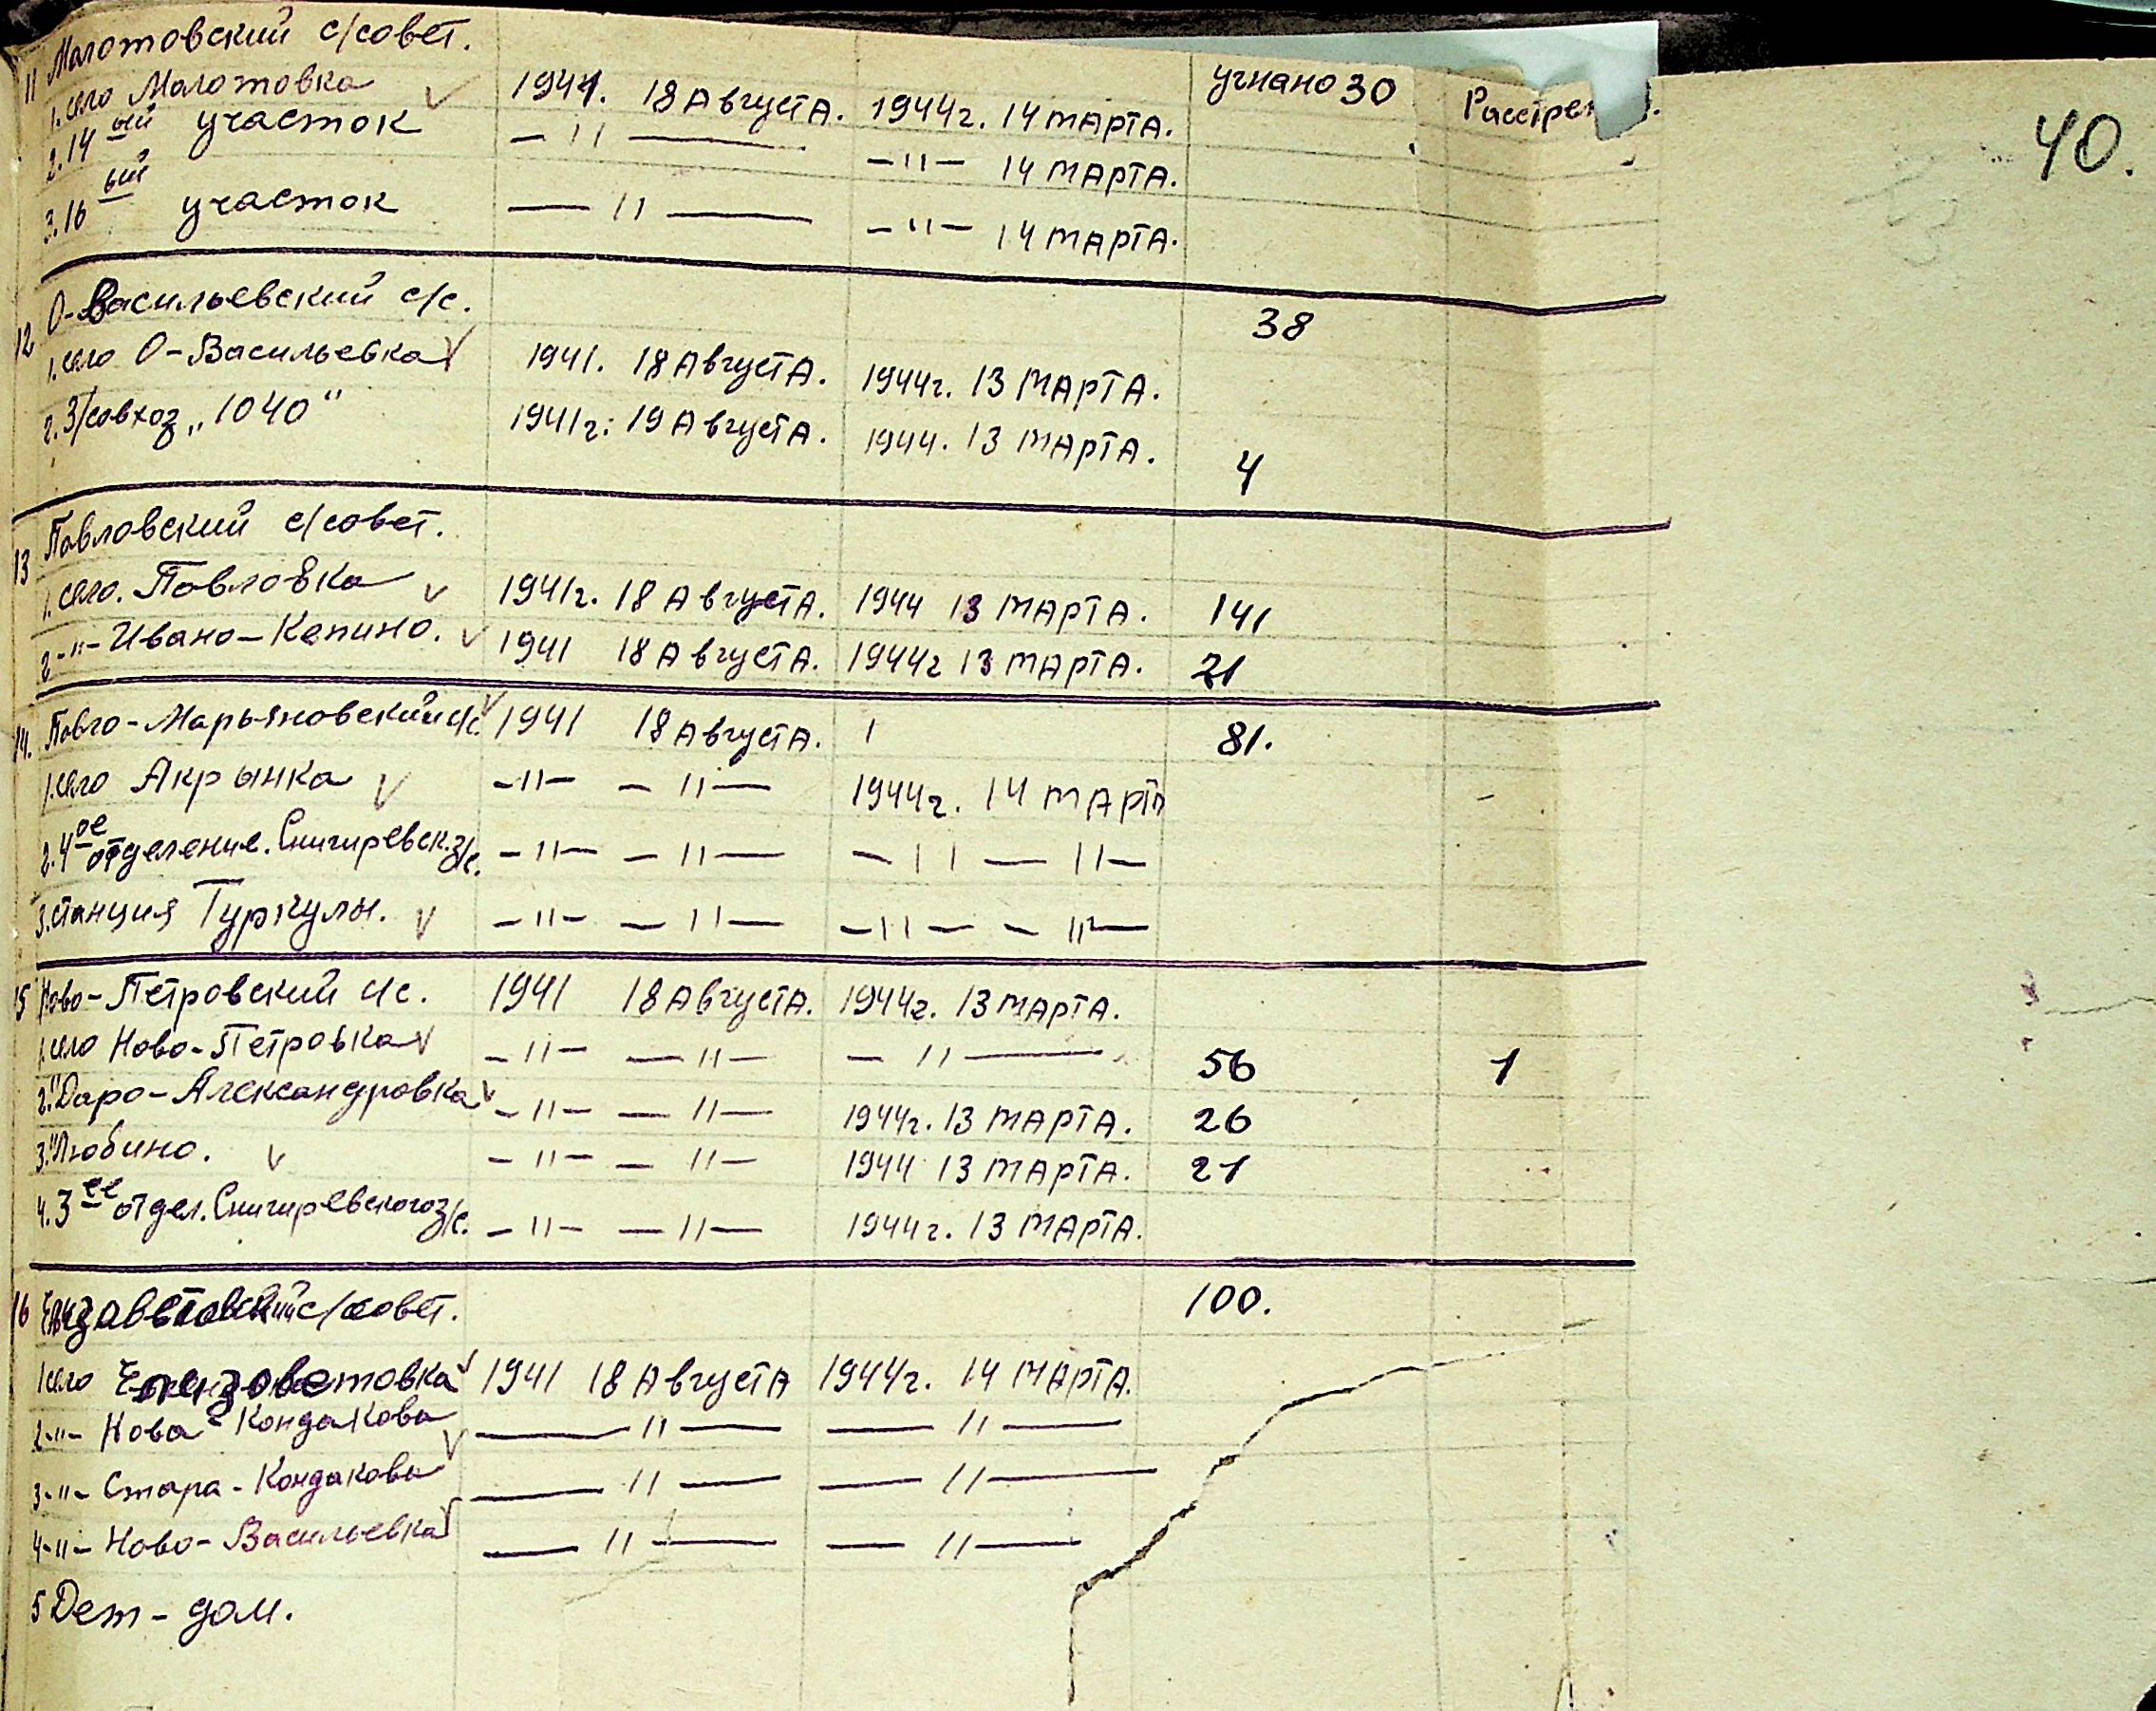 40.
11 Молотовский с/совет.
угнано 30
1. село Молотовка 1941. 18 Августа. 1944г. 14 марта.
2. 14 ый участок — " — — " — 14 марта.
3. 16 ый участок — " — — " — 14 марта.
12 О-Васильевский с/с. 38
1. село О-Васильевка 1941. 18 Августа. 1944г. 13 марта.
2. З/совхоз „1040“ 1941г: 19 Августа. 1944. 13 марта. 4
13 Павловский с/совет.
1. село. Павловка 1941г. 18 Августа. 1944 13 марта. 141
2 -"- Ивано-Кепино. 1941 18 Августа. 1944г 13 марта. 21
14. Павло-Марьяновский с/с. 1941 18 Августа. 81.
1. село Акрынка -"- -"- 1944г. 14 март
2. 4 ое отделение. Снигиревск. з/с. -"- -"- -"- -"-
3. станция Туркулы. -"- -"- -"- -"-
15 Ново-Петровский с/с. 1941 18 Августа. 1944г. 13 марта.
1. село Ново-Петровка -"- -"- — " — 56 1
2. " Даро-Александровка -"- -"- 1944г. 13 марта. 26
3. " Любино. -"- -"- 1944 13 марта. 21
4. 3 ее отдел. Снигиревского з/с. -"- -"- 1944г. 13 марта.
16 Елизаветовский с/совет. 100.
1 село Елизоветовка 1941 18 Августа 1944г. 14 марта.
2 -"- Нова-Кондакова — " — — " —
3 -"- Стара-Кондакова — " — — " —
4 -"- Ново-Васильевка — " — — " —
5 Дет-дом.